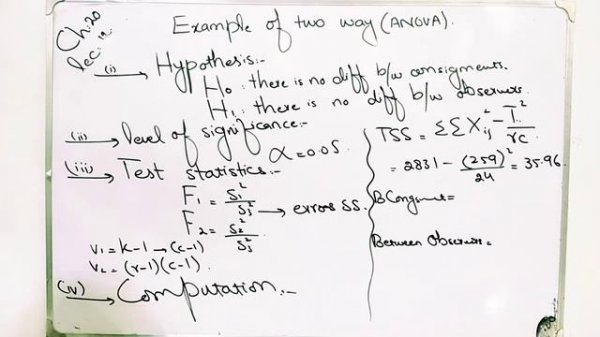 Ch:20
Lec:12
Example of two way (ANOVA).
(i) → Hypothesis:-
H₀: there is no diff b/w consigments.
H₁: there is no diff b/w observers.
(ii) → level of significance:-
α = 0.05
(iii) → Test statistics:-
F₁ = S₁²/S₃²
→ errors SS.
F₂ = S₂²/S₃²
V₁ = k-1 → (c-1)
V₂ = (r-1)(c-1)
(iv) → Computation:-
TSS = ΣΣXᵢⱼ² - T..²/rc
= 2831 - (259)²/24 = 35.96
Between Observers =